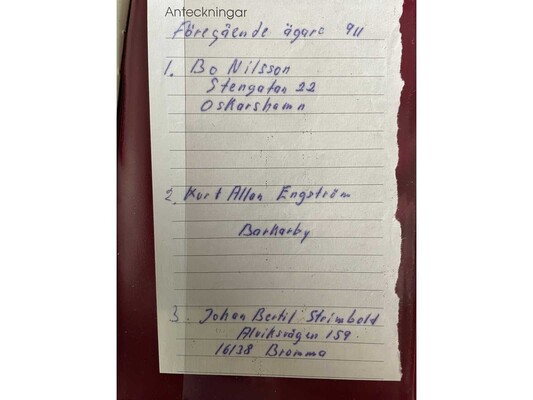 Anteckningar
Föregående ägare 911
1. Bo Nilsson
Stengatan 22
Oskarshamn
2. Kurt Allan Engström
Barkarby
3. Johan Bertil Strimbold
Alviksvägen 159
16138 Bromma